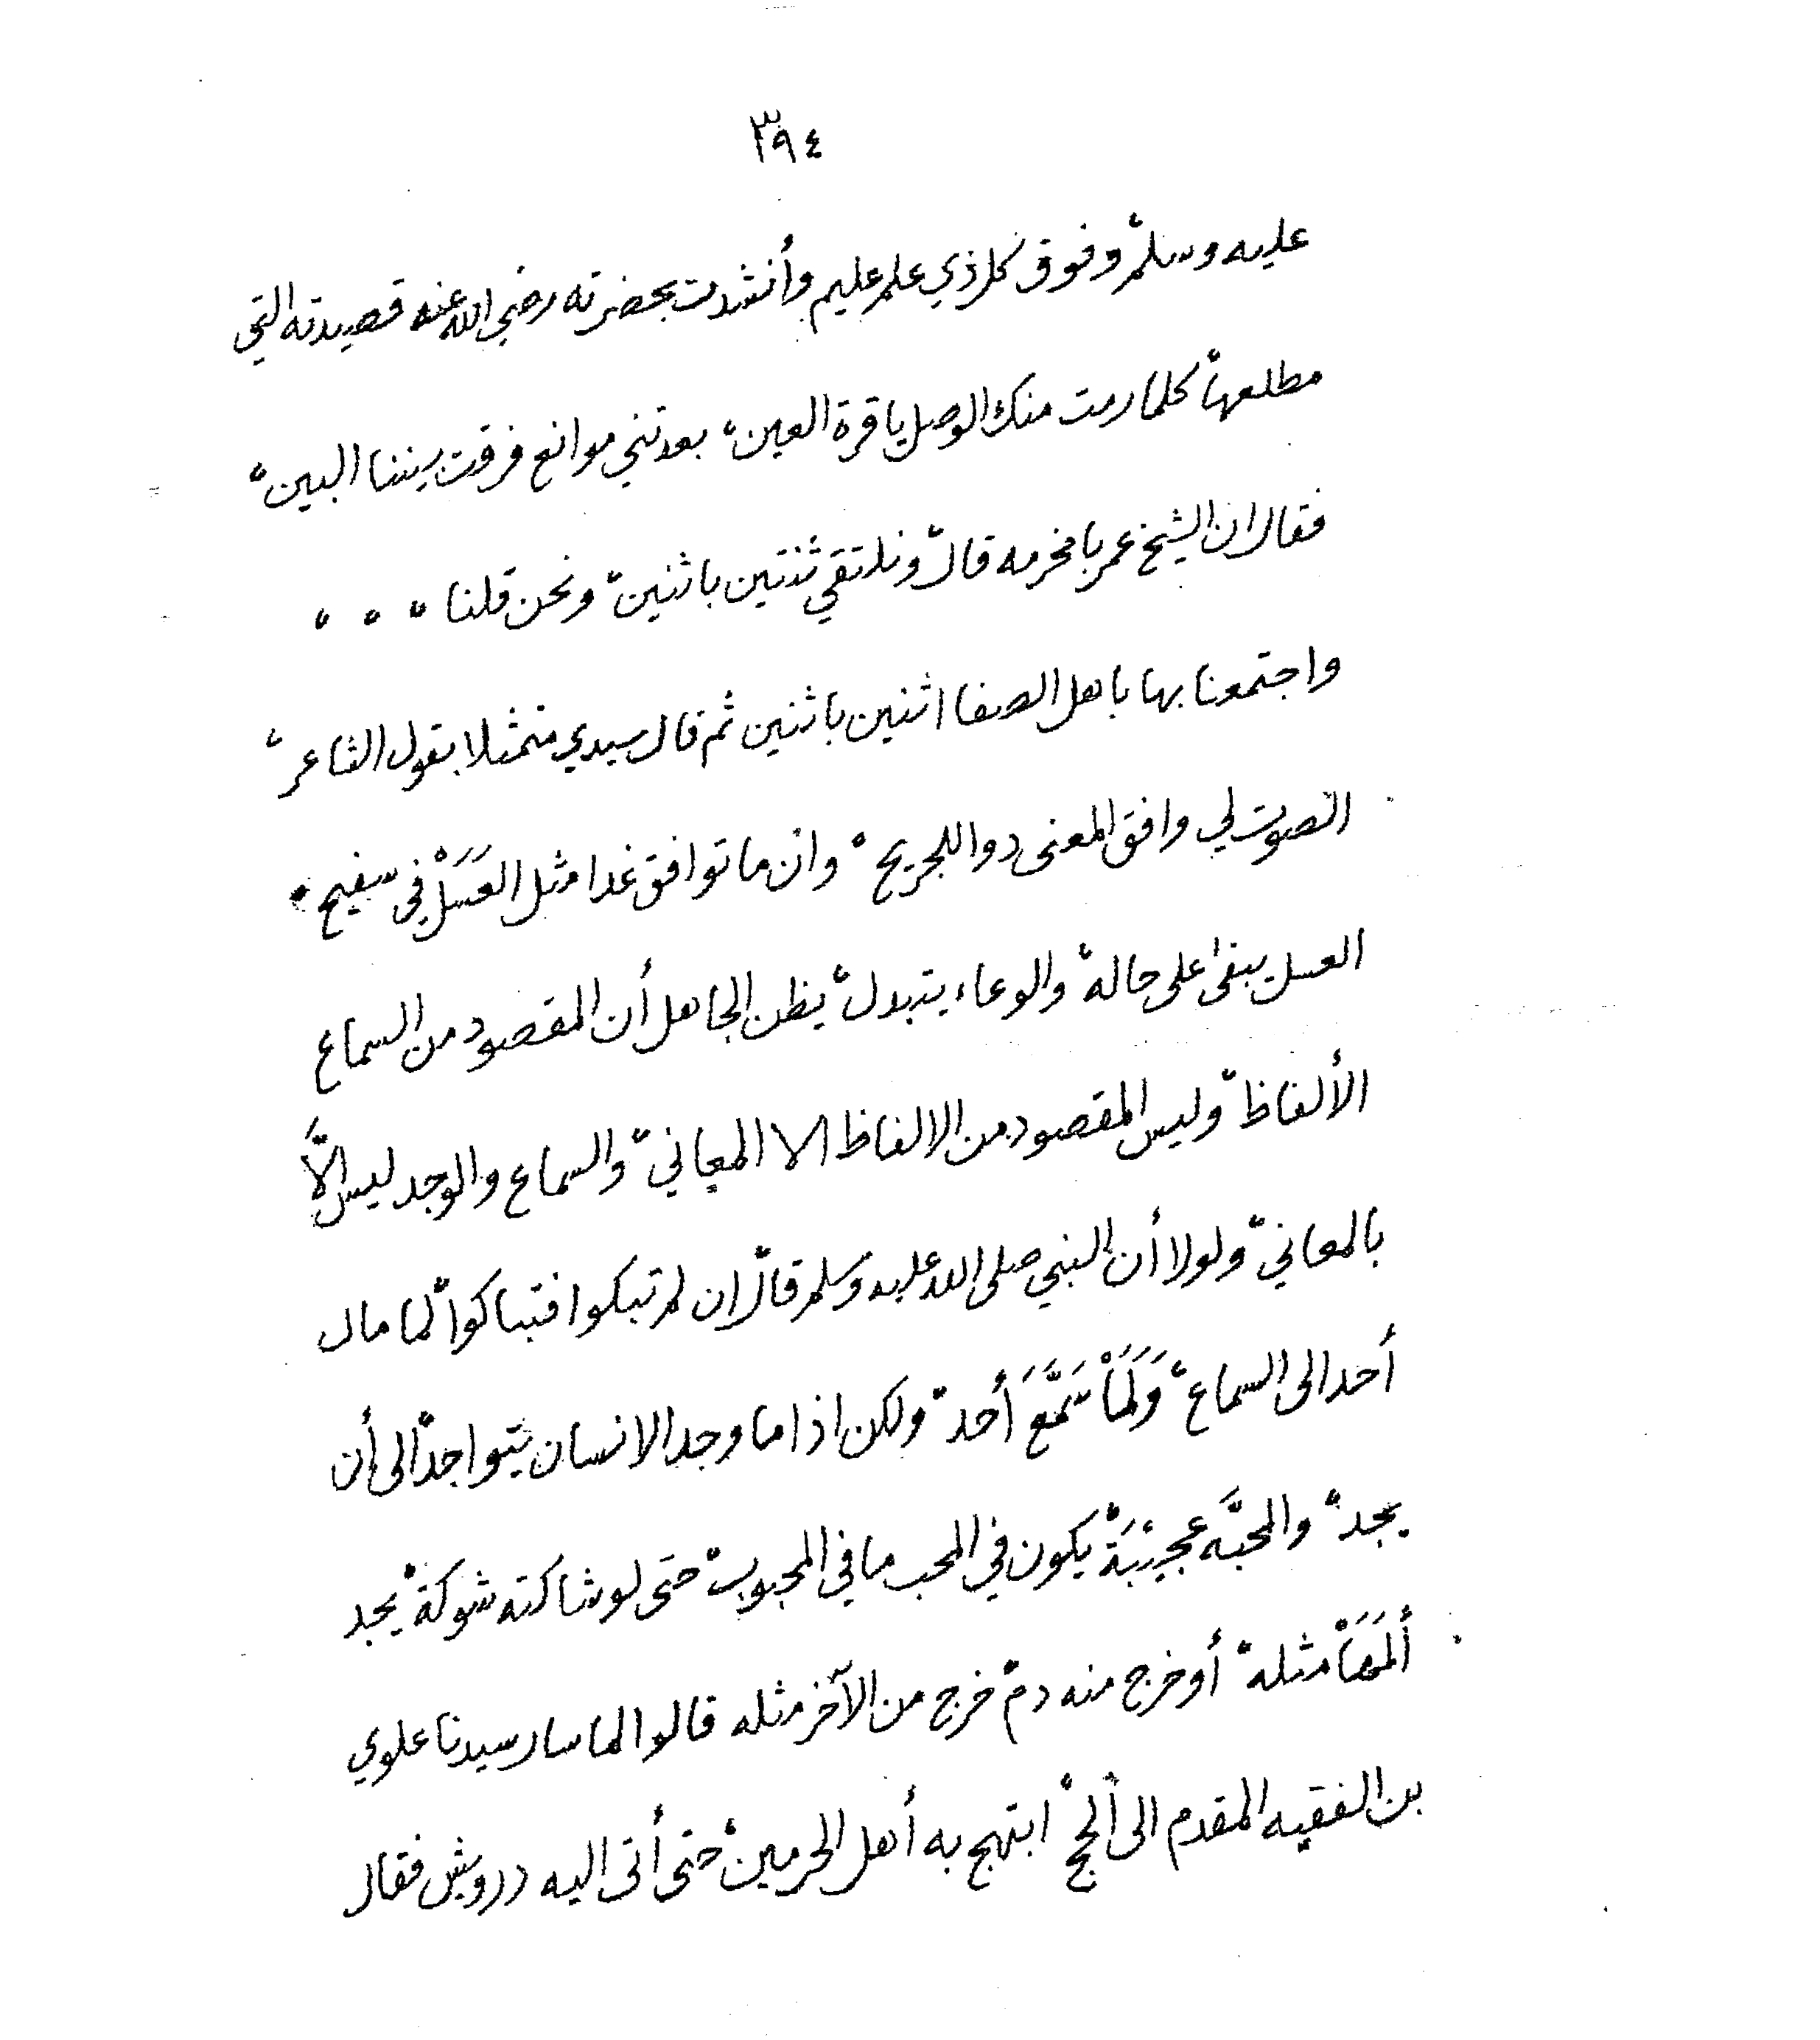 ٣٩٤
عليه وسلم، وفوق كل ذي علم عليم وأنشدت بحضرته رضي الله عنه قصيدته التي
مطلعها، كلما رمت منك الوصل يا قرة العين، بعدتني موانع فرقت بيننا البين،
فقال ان الشيخ عمر بامخرمه قال، ونلتقي ثنتين باثنين، ونحن قلنا ، ، ،
واجتمعنا بها باهل الصفا اثنين باثنين ثم قال سيدي متمثلا بقول الشاعر،
الصوت لي وافق المعنى دوا للجريح، وان ما توافق غدا مثل العَسَلْ في سفيح،
العسل يبقى على حاله، والوعاء يتبدل، يظن الجاهل أن المقصود من السماع
الألفاظ، وليس المقصود من الالفاظ الا المعاني، والسماع والوجد ليس الَّا
بالمعاني، ولولا أن النبي صلى الله عليه وسلم قال، ان لم تبكوا فتباكوا، لما مال
أحد الى السماع، وَلَمَاْ سَمَّعَ أحد، ولكن اذا ما وجد الانسان يتواجد، الى أن
يجد، والمحبَّه عجيْبَةْ، يكون في المحب ما في المحبوب، حتى لو شاكته شوكة، يجد
ألَمَهَاْ مثله، أو خرج منه دم، خرج من الآخر مثله قالوا لما سار سيدنا علوي
بن الفقيه المقدم الى الحج، ابتهج به أهل الحرمين، حتى أتى اليه درويش فقال